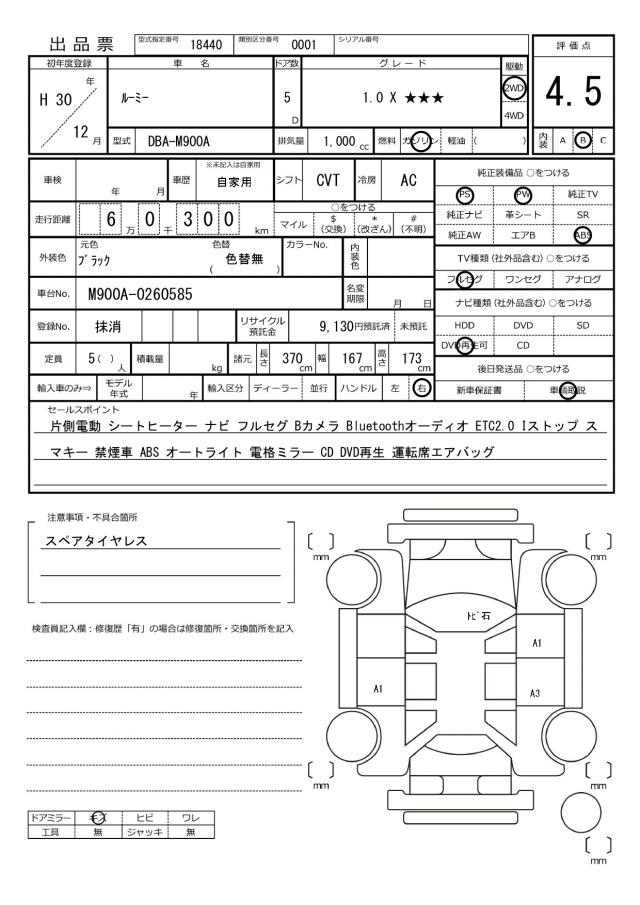 出品票 型式指定番号 18440 類別区分番号 0001 シリアル番号
評価点
初年度登録 車名 ドア数 グレード 駆動
H 30 年 ルーミー 5 D 1.0 X ★★★ 2WD 4.5
12 月 4WD
型式 DBA-M900A 排気量 1,000 cc 燃料 ガソリン 軽油 ( ) 内装 A B C
※未記入は自家用
車検 年 月 車歴 自家用 シフト CVT 冷房 AC
純正装備品 ○をつける
PS PW 純正TV
純正ナビ 革シート SR
純正AW エアB ABS
走行距離 6 万 0 千 3 0 0 km
○をつける
マイル $ (交換) * (改ざん) # (不明)
外装色 元色 ブラック 色替 ( 色替無 ) カラーNo. 内装色
TV種類 (社外品含む) ○をつける
フルセグ ワンセグ アナログ
車台No. M900A-0260585 名変期限 月 日
ナビ種類 (社外品含む) ○をつける
登録No. 抹消 リサイクル預託金 9,130円預託済 未預託
HDD DVD SD
DVD再生可 CD
定員 5 ( ) 人 積載量 kg 諸元 長さ 370 cm 幅 167 cm 高さ 173 cm
後日発送品 ○をつける
輸入車のみ⇒ モデル年式 年 輸入区分 ディーラー 並行 ハンドル 左 右
新車保証書 車輌取説
セールスポイント
片側電動 シートヒーター ナビ フルセグ Bカメラ Bluetoothオーディオ ETC2.0 Iストップ ス
マキー 禁煙車 ABS オートライト 電格ミラー CD DVD再生 運転席エアバッグ
注意事項・不具合箇所
スペアタイヤレス
検査員記入欄：修復歴「有」の場合は修復箇所・交換箇所を記入
〔 〕 mm
〔 〕 mm
ﾄﾋﾞ石
A1
A1
A3
〔 〕 mm
〔 〕 mm
〔 〕 mm
ドアミラー キズ ヒビ ワレ
工具 無 ジャッキ 無